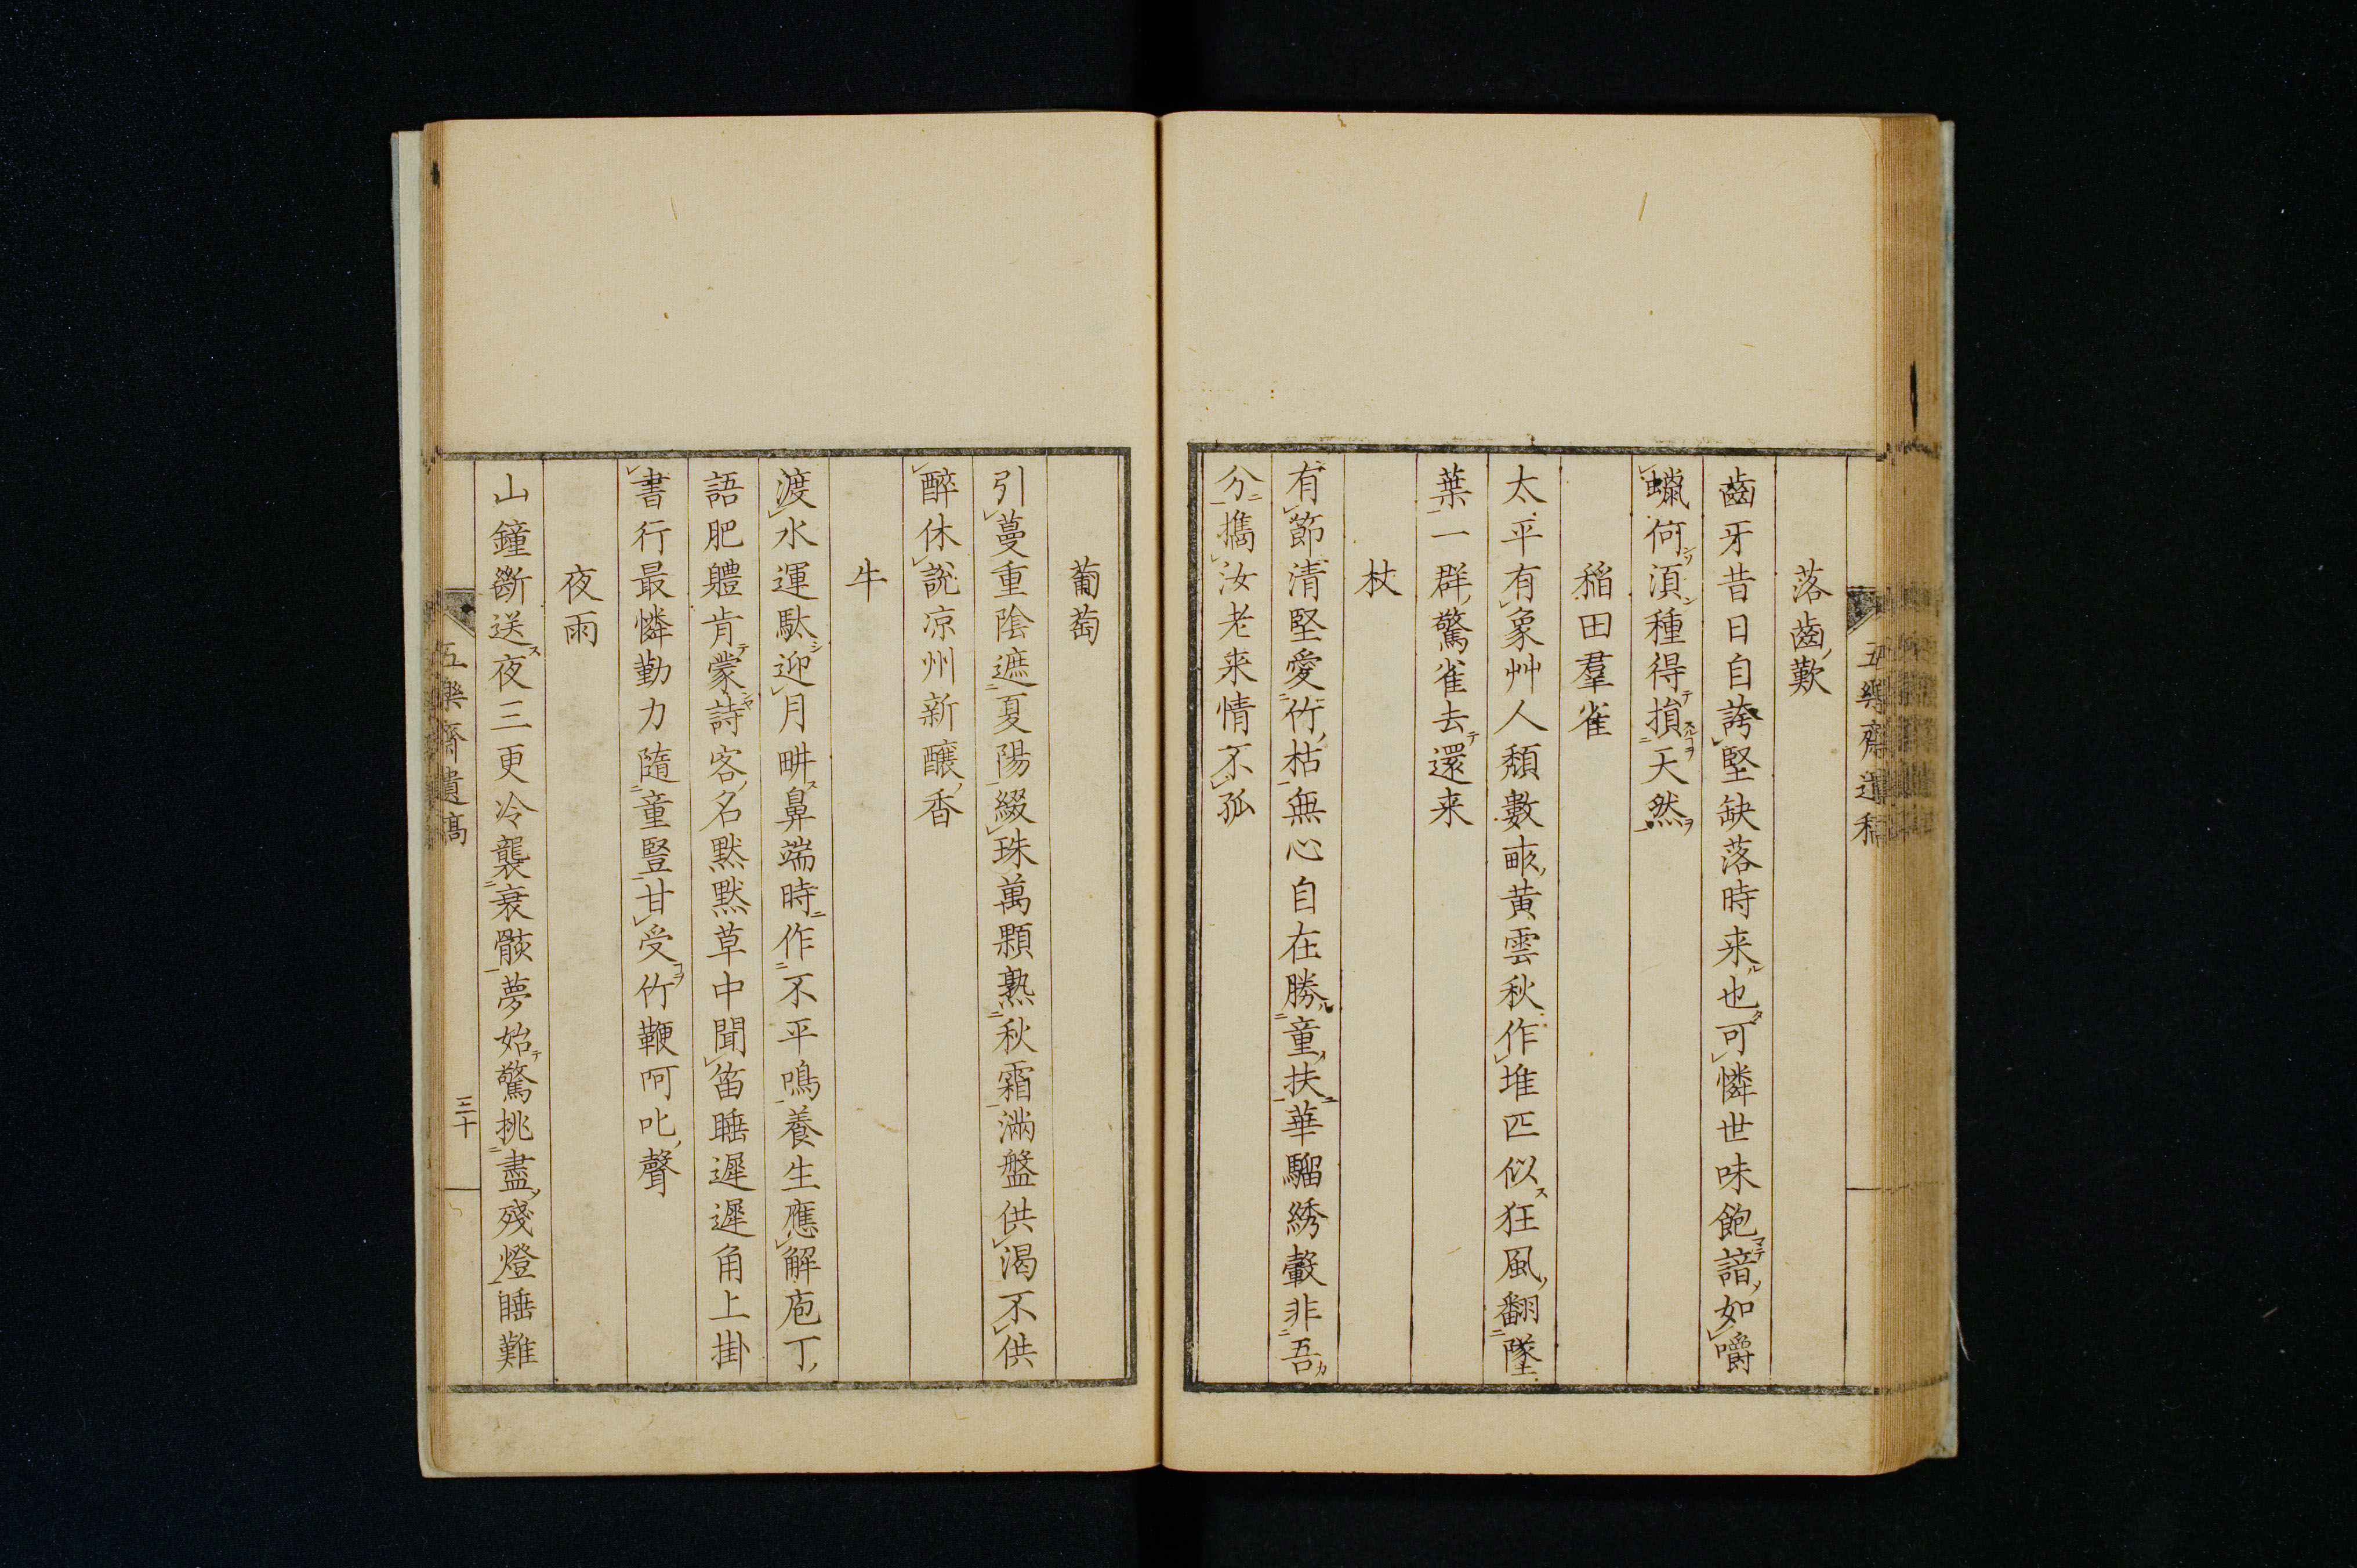 落齒歎
齒牙昔日自誇堅缺落時来也可憐世味飽諳如嚼
蠟何湏種得損天然
稲田羣雀
太平有象艸人頽數畝黄雲秋作堆匹似狂風翻墜
葉一群驚雀去還来
杖
有節清堅愛竹枯無心自在勝童扶華騮綉轂非吾
分携汝老来情不孤
葡萄
引蔓重陰遮夏陽綴珠萬顆熟秋霜滿盤供渴不供
醉休説凉州新釀香
牛
渡水運駄迎月畊鼻端時作不平鳴養生應解庖丁
語肥軆肯蒙詩客名黙黙草中聞笛睡遲遲角上掛
書行最憐勤力隨童豎甘受竹鞭呵叱聲
夜雨
山鐘斷送夜三更冷襲衰骸夢始驚挑盡殘燈睡難
五樂齋遺稿
三十